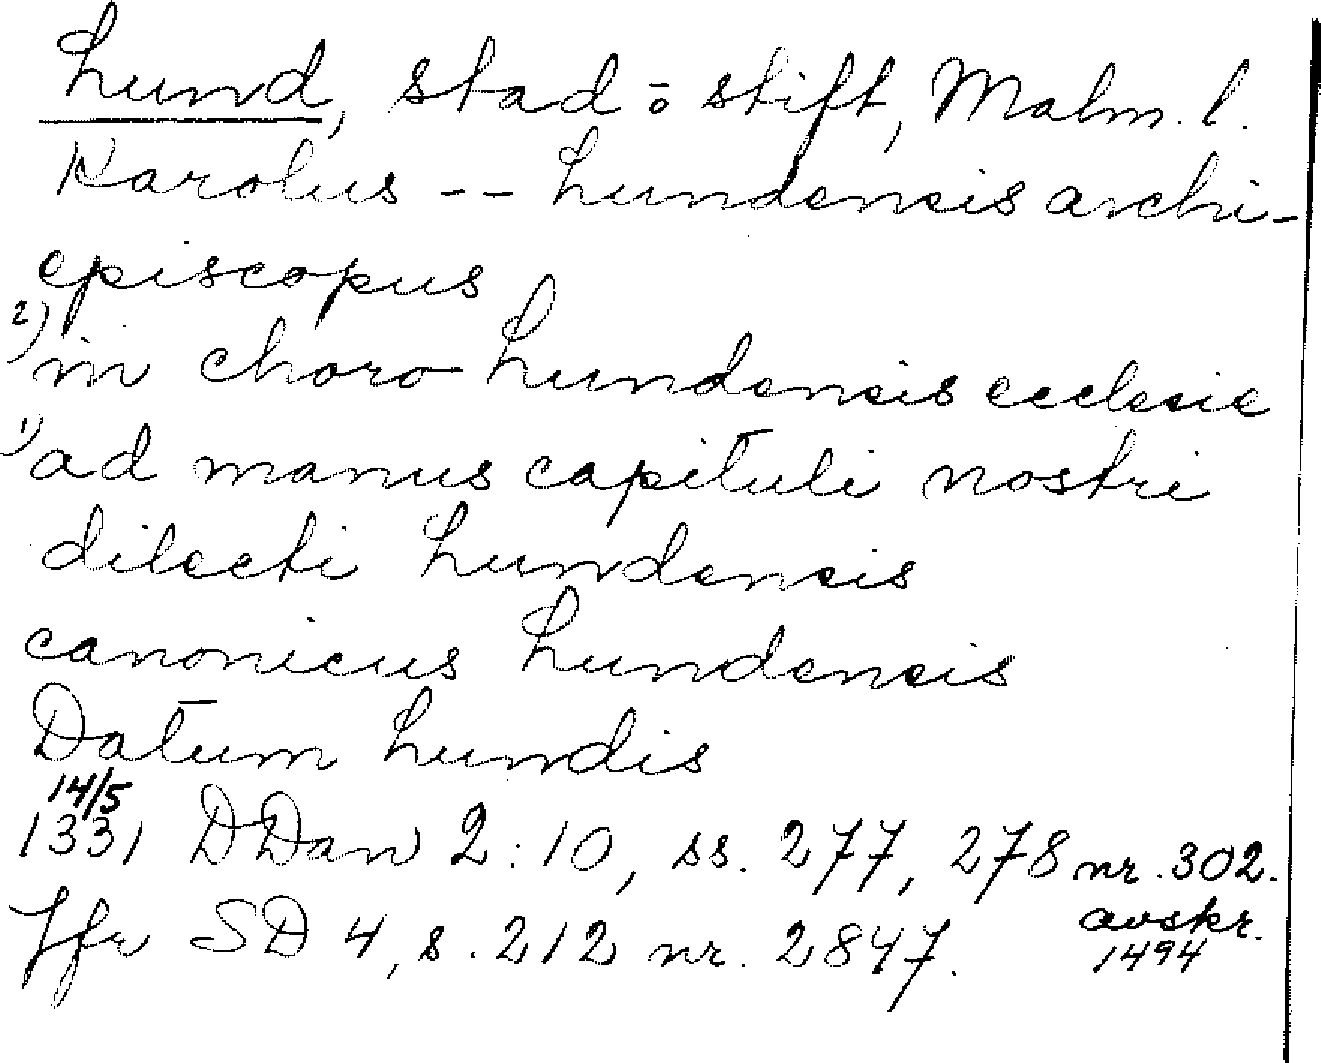 Lund, stad o stift, Malm. l.
Karolus -- Lundensis archi-
episcopus
2) in choro Lundensis ecclesie
1) ad manus capituli nostri
dilecti Lundensis
canonicus Lundensis
Datum Lundis
14/5
1331 DDan 2:10, ss. 277, 278 nr. 302.
avskr.
Jfr SD 4, s. 212 nr. 2847.
1494